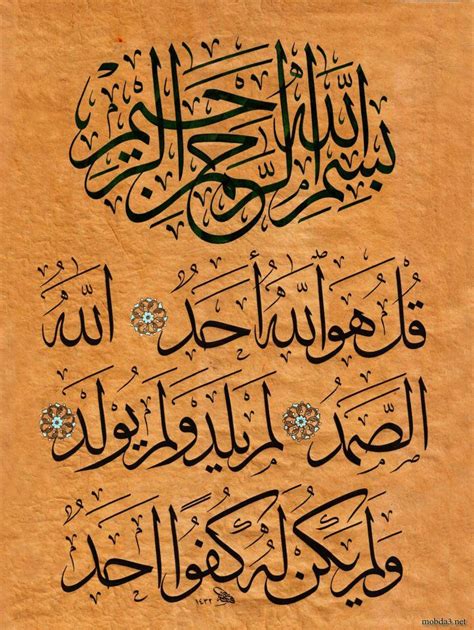 بِسْمِ اللهِ الرَّحْمٰنِ الرَّحِيمِ
قُلْ هُوَ اللهُ أَحَدٌ اللهُ
الصَّمَدُ لَمْ يَلِدْ وَلَمْ يُولَدْ
وَلَمْ يَكُنْ لَهُ كُفُوًا أَحَدٌ
١٤٣٢
mobda3.net